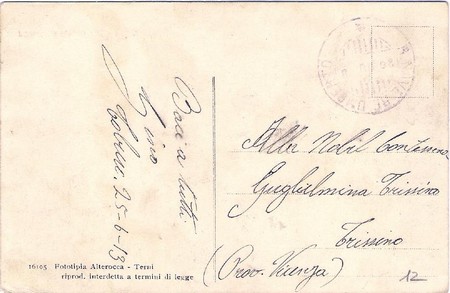 Baci a tutti
Gino
Tobruc. 25-6-13
Alla Nobil Contessina
Guglielmina Trissino
Trissino
(Prov. Vicenza)
12
16105 Fototipia Alterocca - Terni
riprod. interdetta a termini di legge